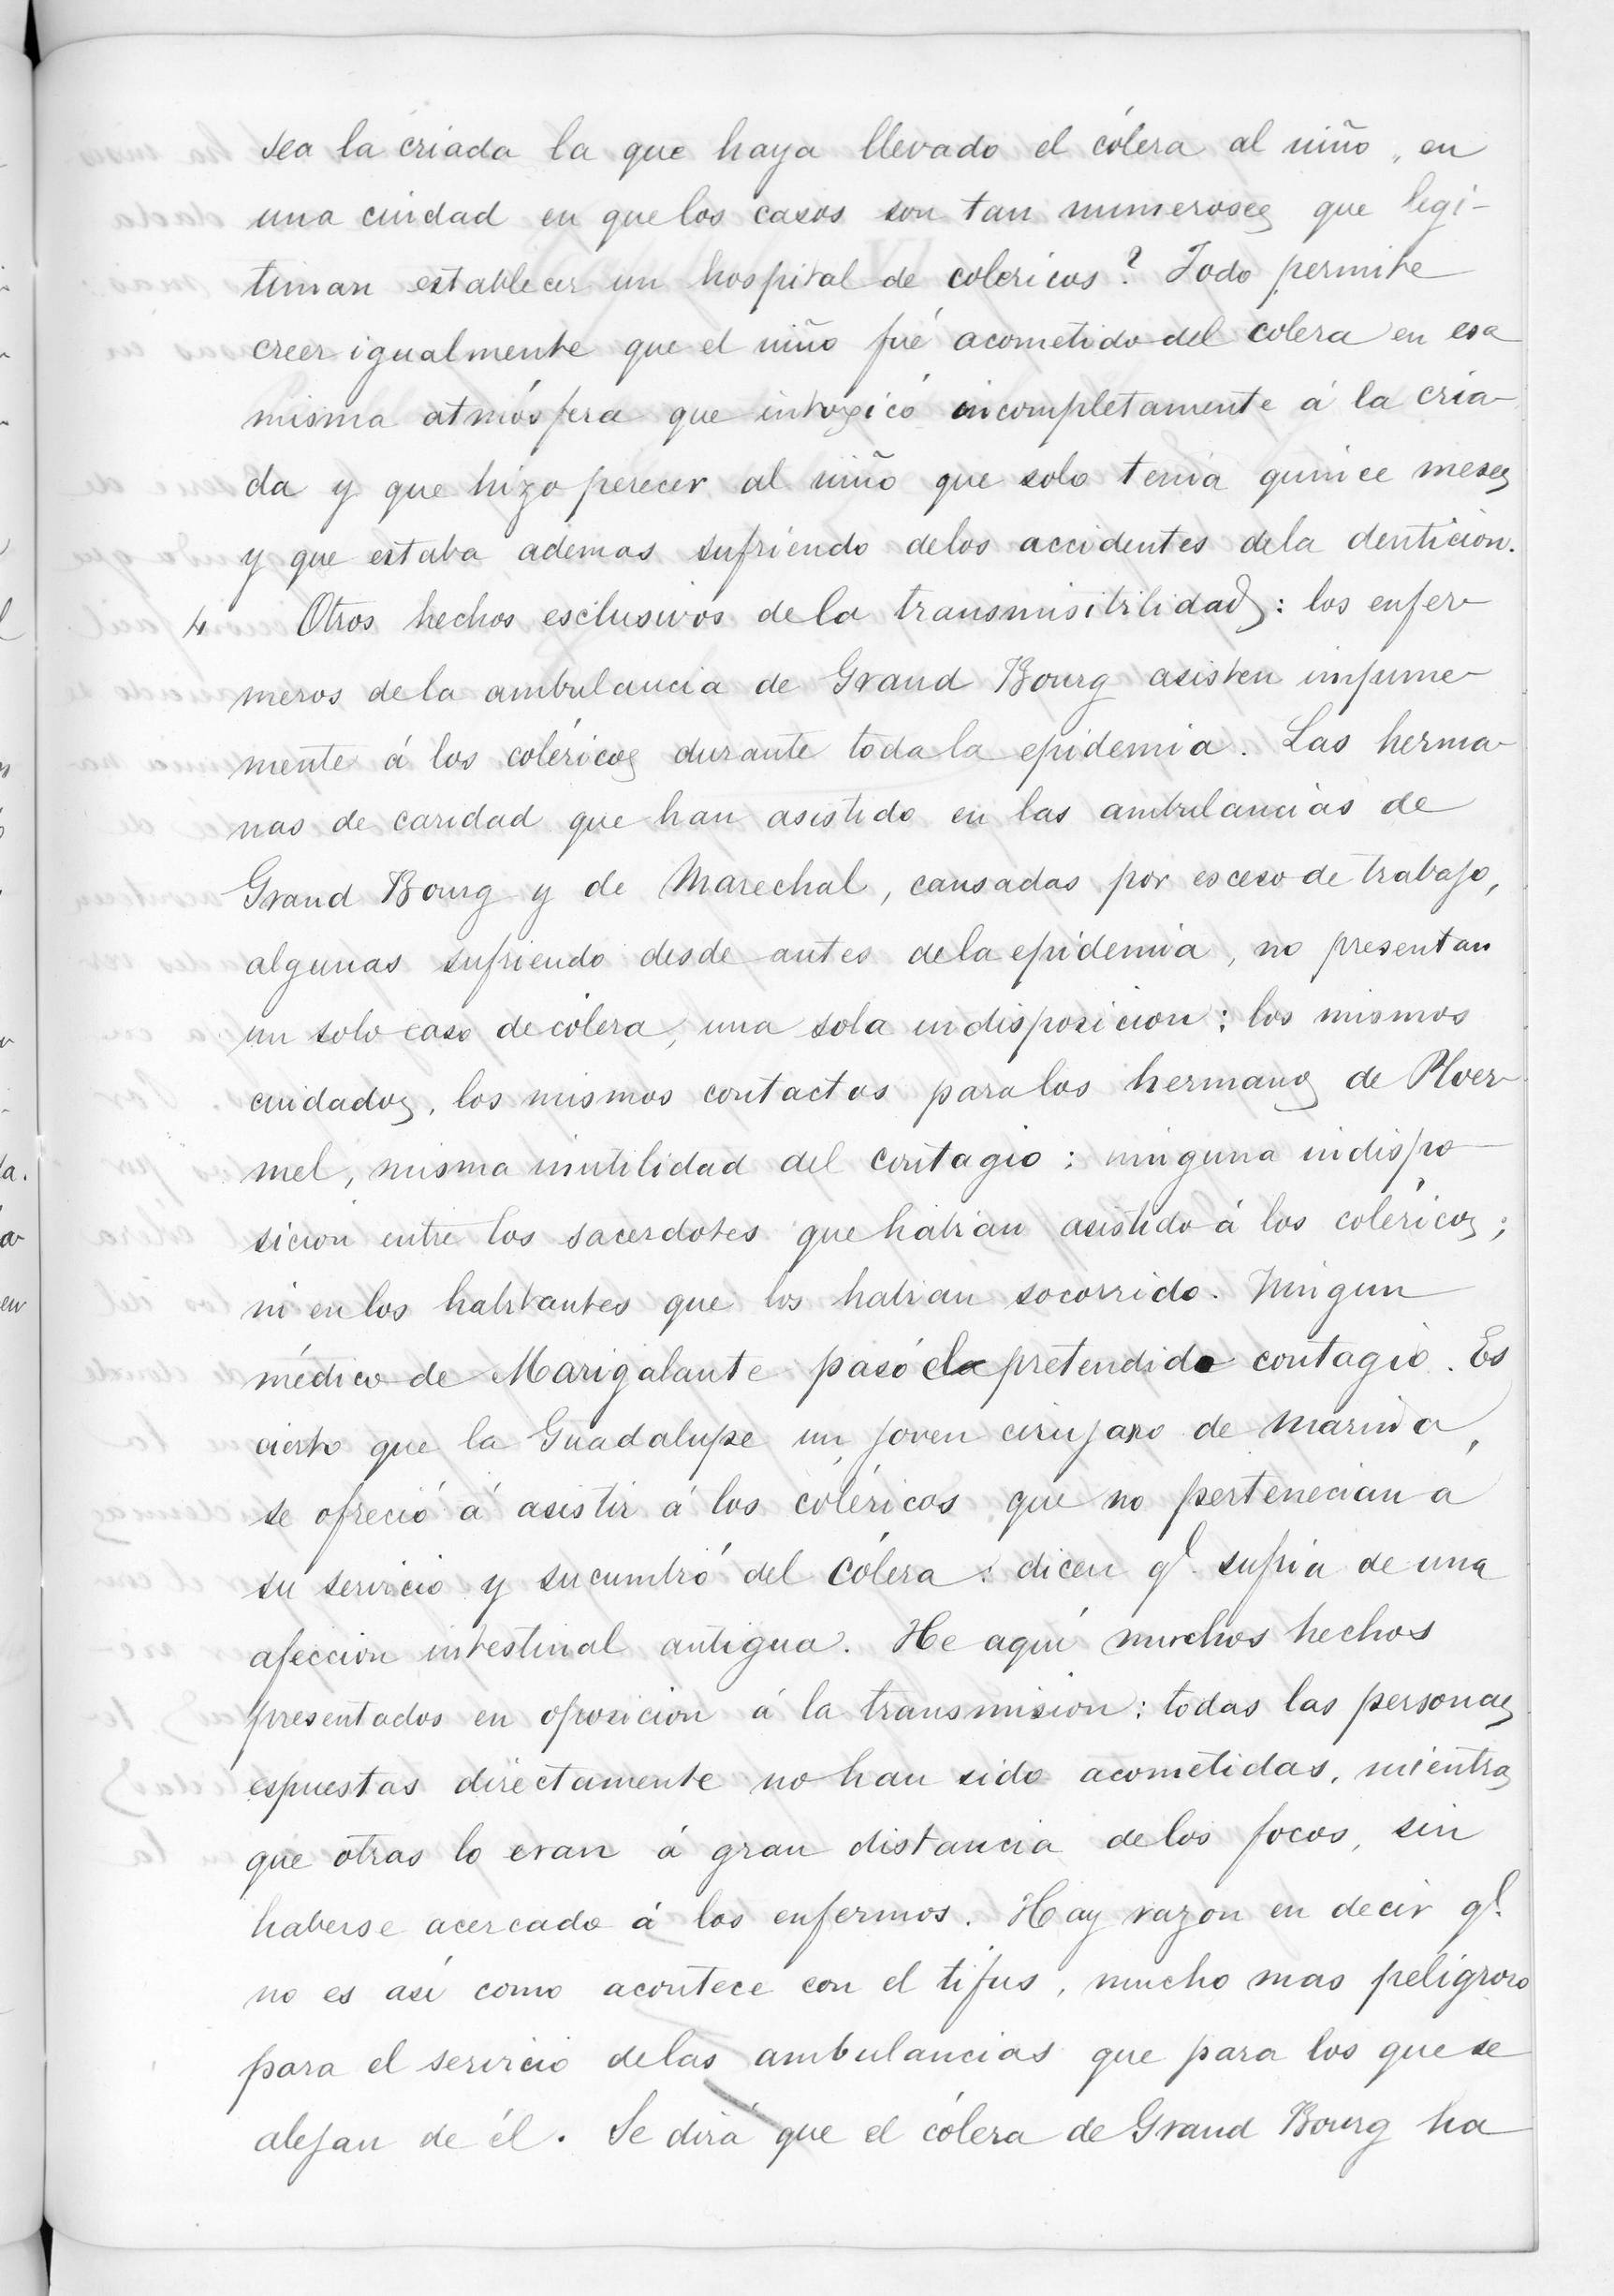 sea la criada la que haya llevado el cólera al niño, en
una ciudad en que los casos son tan numerosos que legi-
timan establecer un hospital de coléricos? Todo permite
creer igualmente que el niño fué acometido del cólera en esa
misma atmósfera que intoxicó incompletamente á la cria-
da y que hizo perecer al niño que solo tenia quince meses
y que estaba ademas sufriendo de los accidentes de la denticion.
4 Otros hechos esclusivos de la transmisibilidad: los enfer-
meros de la ambulancia de Grand Bourg asisten impune-
mente á los coléricos durante toda la epidemia. Las herma-
nas de caridad que han asistido en las ambulancias de
Grand Bourg y de Marechal, cansadas por esceso de trabajo,
algunas sufriendo desde antes de la epidemia, no presentan
un solo caso de cólera, una sola indisposicion: los mismos
cuidados, los mismos contactos para los hermanos de Ploer-
mel, misma inutilidad del contagio: ninguna indispo-
sicion entre los sacerdotes que habian asistido á los coléricos;
ni en los habitantes que los habian socorrido. Ningun
médico de Marigalante pasó el pretendido contagio. Es
cierto que la Guadalupe un joven cirujano de marina,
se ofreció á asistir á los coléricos que no pertenecian á
su servicio y sucumbió del cólera: dicen qe. sufria de una
afeccion intestinal antigua. He aquí muchos hechos
presentados en oposicion á la transmision: todas las personas
espuestas directamente no han sido acometidas, mientras
que otras lo eran á gran distancia de los focos, sin
haberse acercado á los enfermos. Hay razon en decir qe.
no es así como acontece con el tifus, mucho mas peligroso
para el servicio de las ambulancias que para los que se
alejan de él. Se dirá que el cólera de Grand Bourg ha